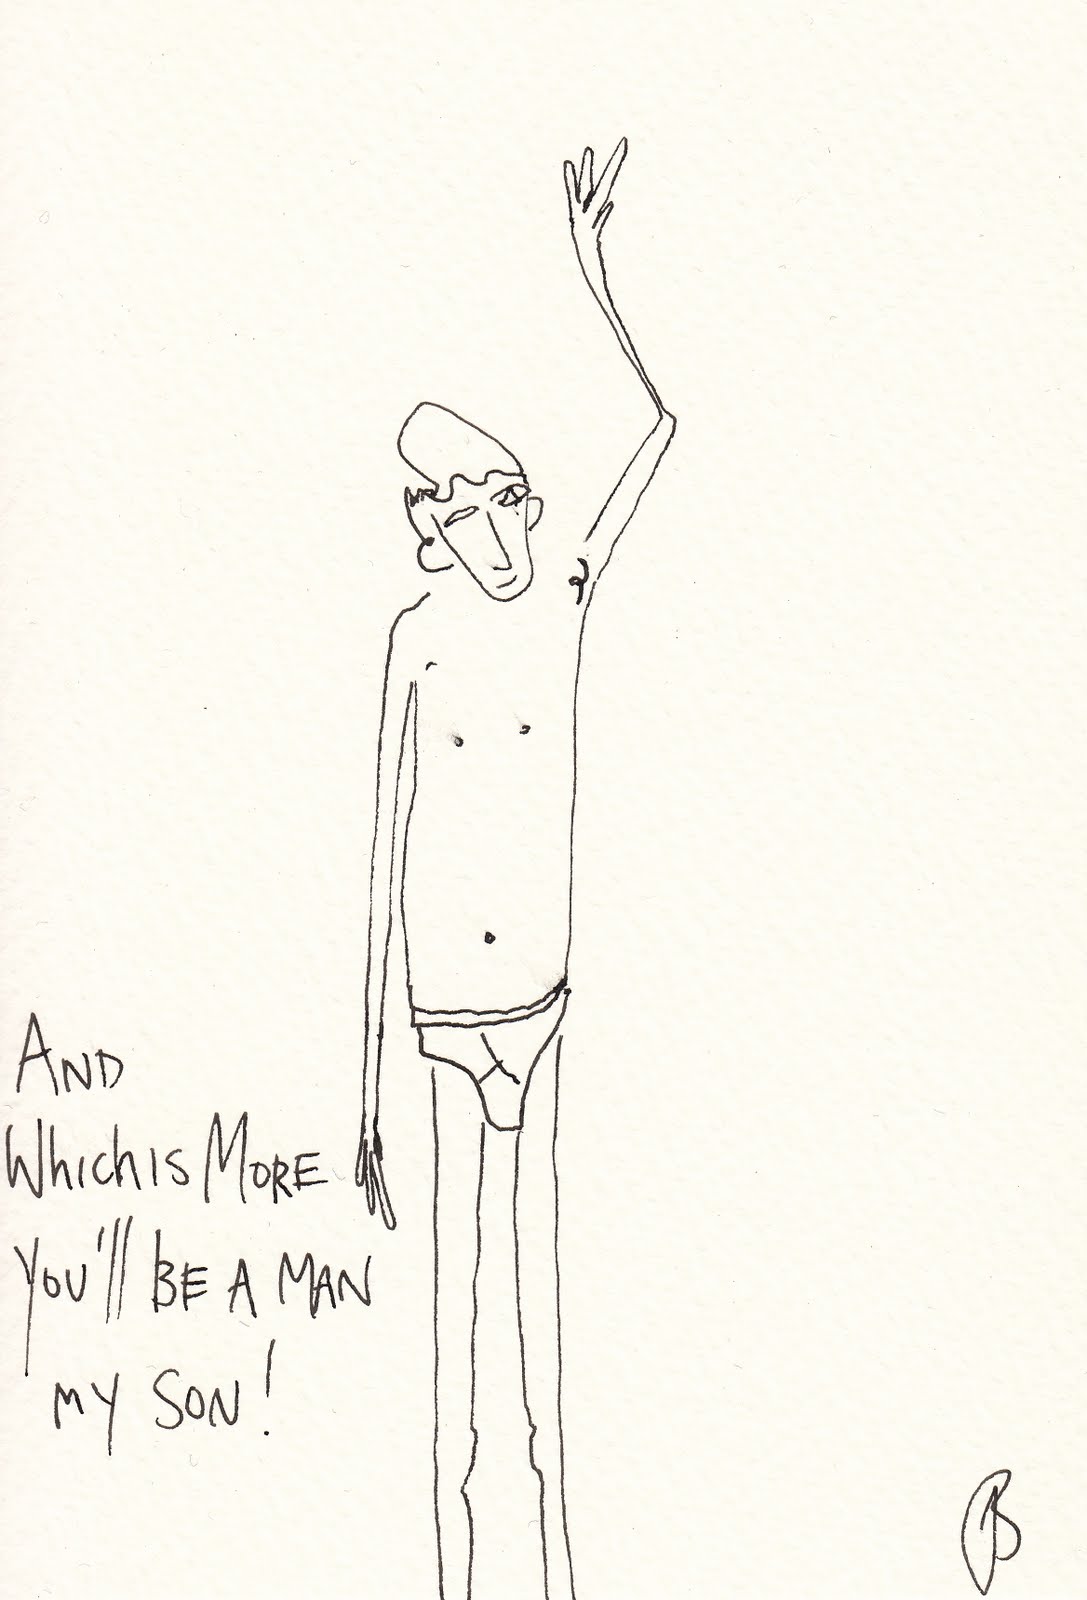 AND
Which is MORE
You'll BE A MAN
MY SON!
B